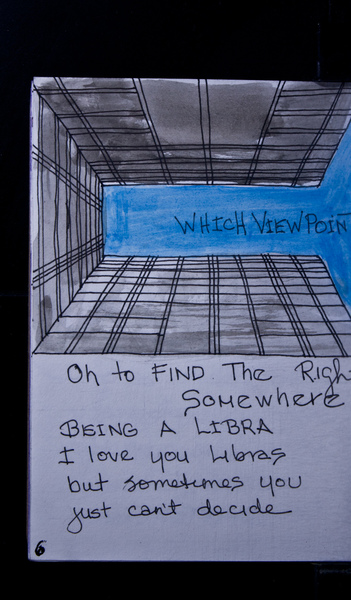 WHICH VIEWPOINT
Oh to FIND The Righ
Somewhere
BEING A LIBRA
I love you Libras
but sometimes you
just can't decide
6